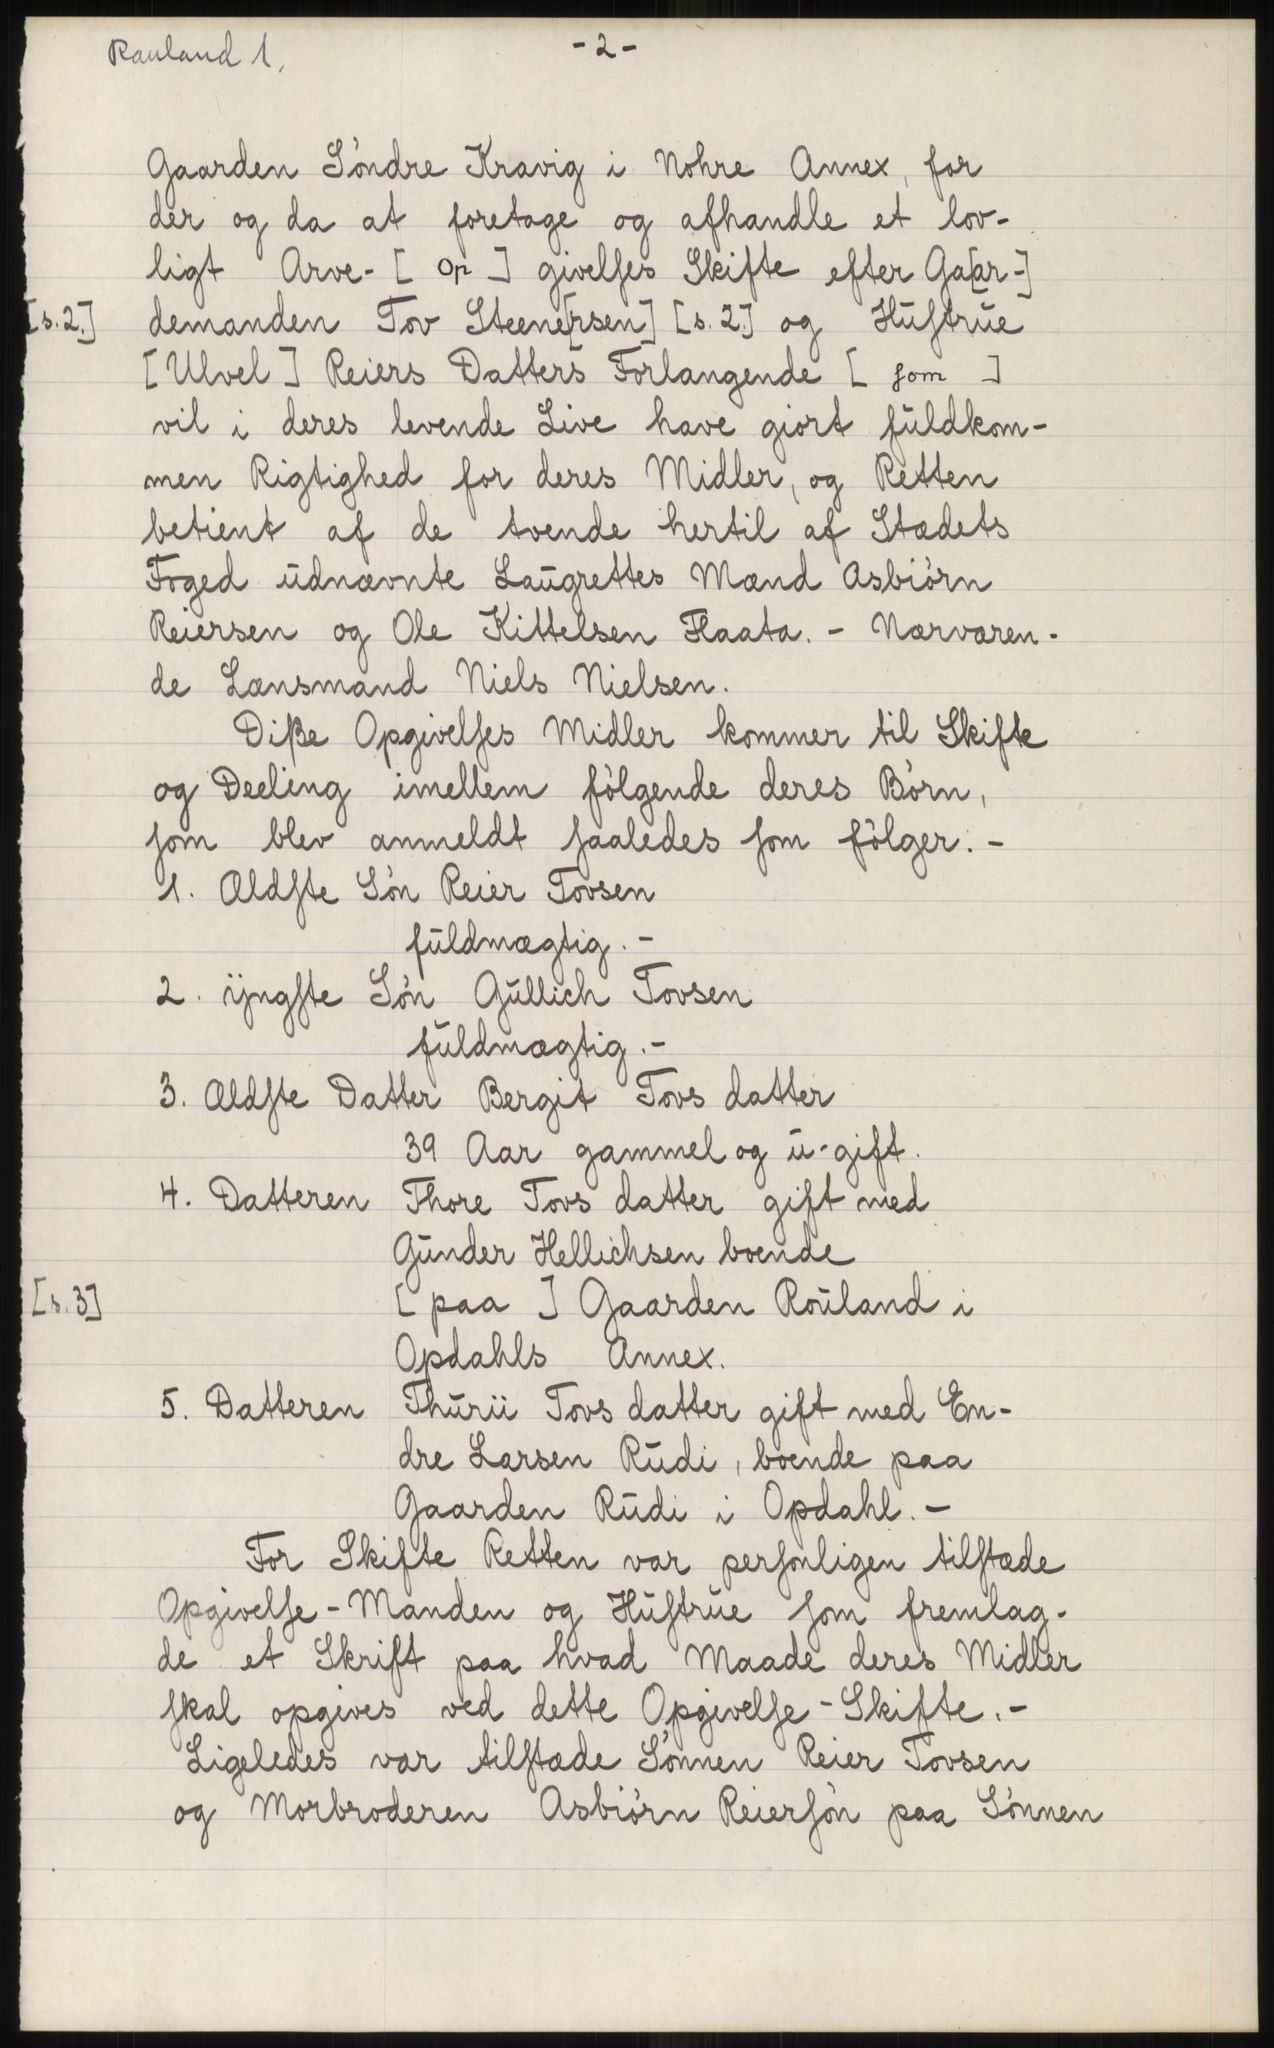 Rauland 1.
- 2 -
Gaarden Söndre Kravig i Nohre Annex, for
der og da at foretage og afhandle et lov-
ligt Arve- [ Op ] givelses Skifte efter Ga[ar-]
[s. 2.] demanden Tov Steene[rsen] [s. 2.] og Hustrue
[ Ulvel ] Reiers Datters Forlangende [ som ]
vil i deres levende Live have giort fuldkom-
men Rigtighed for deres Midler, og Retten
betient af de tvende hertil af Stædets
Foged udnævnte Laugrettes Mænd Asbiörn
Reiersen og Ole Kittelsen Flaata. - Nærværen-
de Lænsmand Niels Nielsen.
Diße Opgivelses Midler kommer til Skifte
og Deeling imellem fölgende deres Börn,
som blev anmeldt saaledes som fölger: -
1. Ældste Sön Reier Tovsen
fuldmægtig. -
2. ÿngste Sön Gullich Tovsen
fuldmægtig. -
3. Ældste Datter Bergit Tovs datter
39 Aar gammel og u-gift.
4. Datteren Thore Tovs datter gift med
Gunder Hellichsen boende
[s. 3] [ paa ] Gaarden Rouland i
Opdahls Annex.
5. Datteren Thurii Tovs datter gift med En-
dre Larsen Rudi, boende paa
Gaarden Rudi i Opdahl. -
For Skifte Retten var personligen tilstæde
Opgivelse - Manden og Hustrue som fremlag-
de et Skrift paa hvad Maade deres Midler
skal opgives ved dette Opgivelse - Skifte. -
Ligeledes var tilstæde Sönnen Reier Tovsen
og Morbroderen Asbiörn Reiersön paa Sönnen